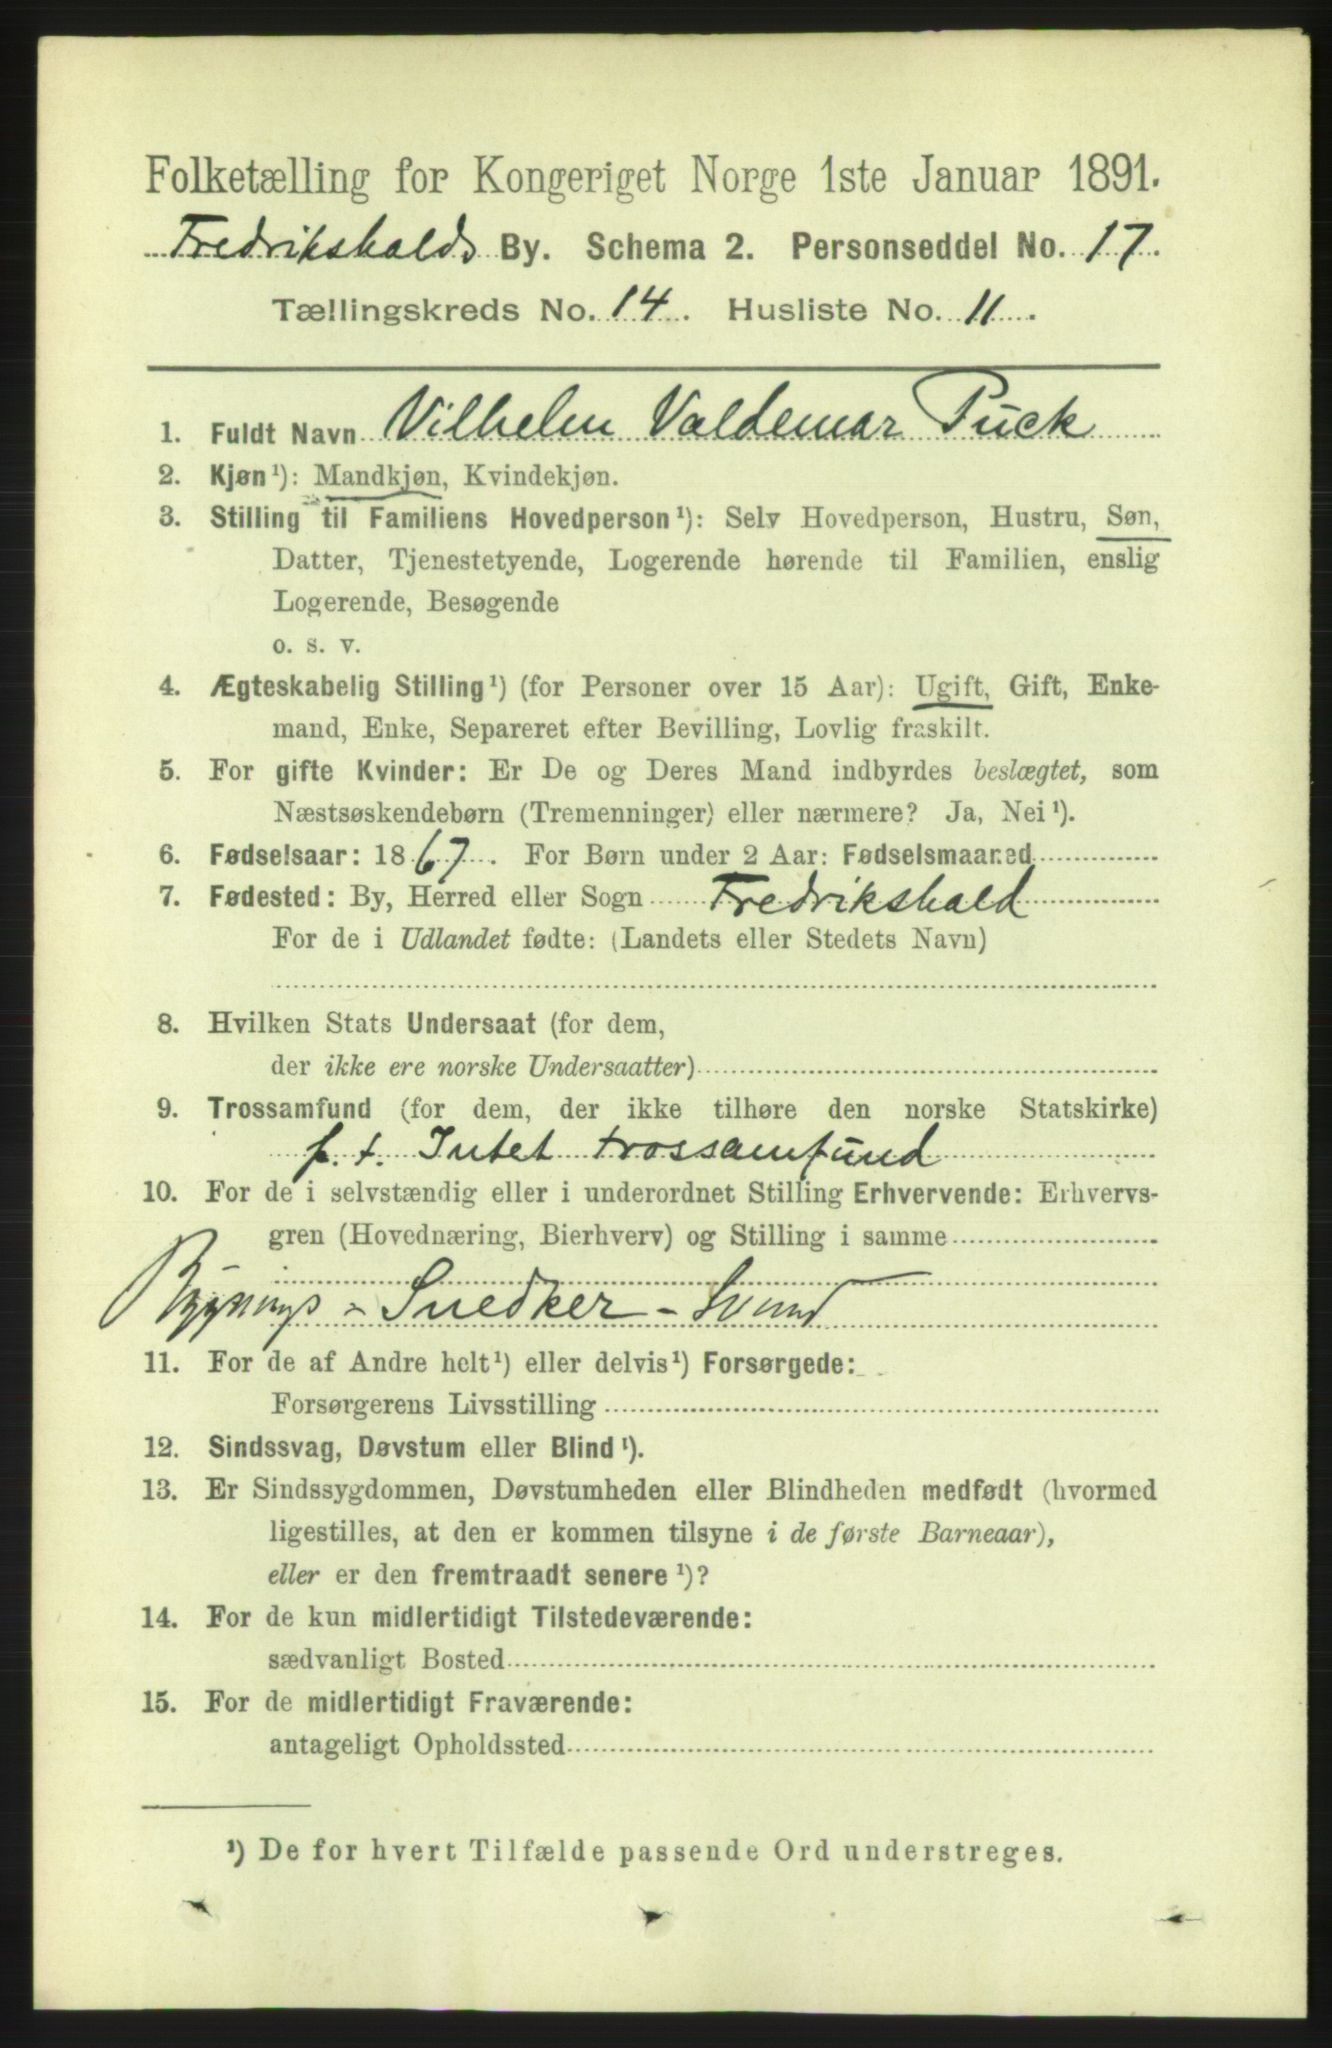 Folketælling for Kongeriget Norge 1ste Januar 1891.
Fredrikshalds By. Schema 2. Personseddel No. 17.
Tællingskreds No. 14. Husliste No. 11.
1. Fuldt Navn Vilhelm Valdemar Puck
2. Kjøn¹): Mandkjøn, Kvindekjøn.
3. Stilling til Familiens Hovedperson¹): Selv Hovedperson, Hustru, Søn,
Datter, Tjenestetyende, Logerende hørende til Familien, enslig
Logerende, Besøgende
o. s. v.
4. Ægteskabelig Stilling¹) (for Personer over 15 Aar): Ugift, Gift, Enke-
mand, Enke, Separeret efter Bevilling, Lovlig fraskilt.
5. For gifte Kvinder: Er De og Deres Mand indbyrdes beslægtet, som
Næstsøskendebørn (Tremenninger) eller nærmere? Ja, Nei¹).
6. Fødselsaar: 1867. For Børn under 2 Aar: Fødselsmaaned
7. Fødested: By, Herred eller Sogn Fredrikshald
For de i Udlandet fødte: (Landets eller Stedets Navn)
8. Hvilken Stats Undersaat (for dem,
der ikke ere norske Undersaatter)
9. Trossamfund (for dem, der ikke tilhøre den norske Statskirke)
f. t. Intet trossamfund
10. For de i selvstændig eller i underordnet Stilling Erhvervende: Erhvervs-
gren (Hovednæring, Bierhverv) og Stilling i samme
Bygnings - Snedker - Svend
11. For de af Andre helt¹) eller delvis¹) Forsørgede:
Forsørgerens Livsstilling
12. Sindssvag, Døvstum eller Blind¹).
13. Er Sindssygdommen, Døvstumheden eller Blindheden medfødt (hvormed
ligestilles, at den er kommen tilsyne i de første Barneaar),
eller er den fremtraadt senere¹)?
14. For de kun midlertidigt Tilstedeværende:
sædvanligt Bosted
15. For de midlertidigt Fraværende:
antageligt Opholdssted
¹) De for hvert Tilfælde passende Ord understreges.